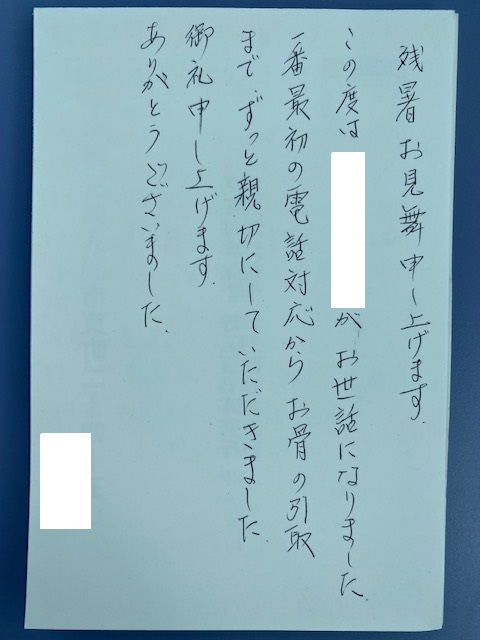 残暑お見舞申し上げます.
この度は
がお世話になりました.
一番最初の電話対応からお骨の引取
まで、ずっと親切にしていただきました.
御礼申し上げます.
ありがとうございました.